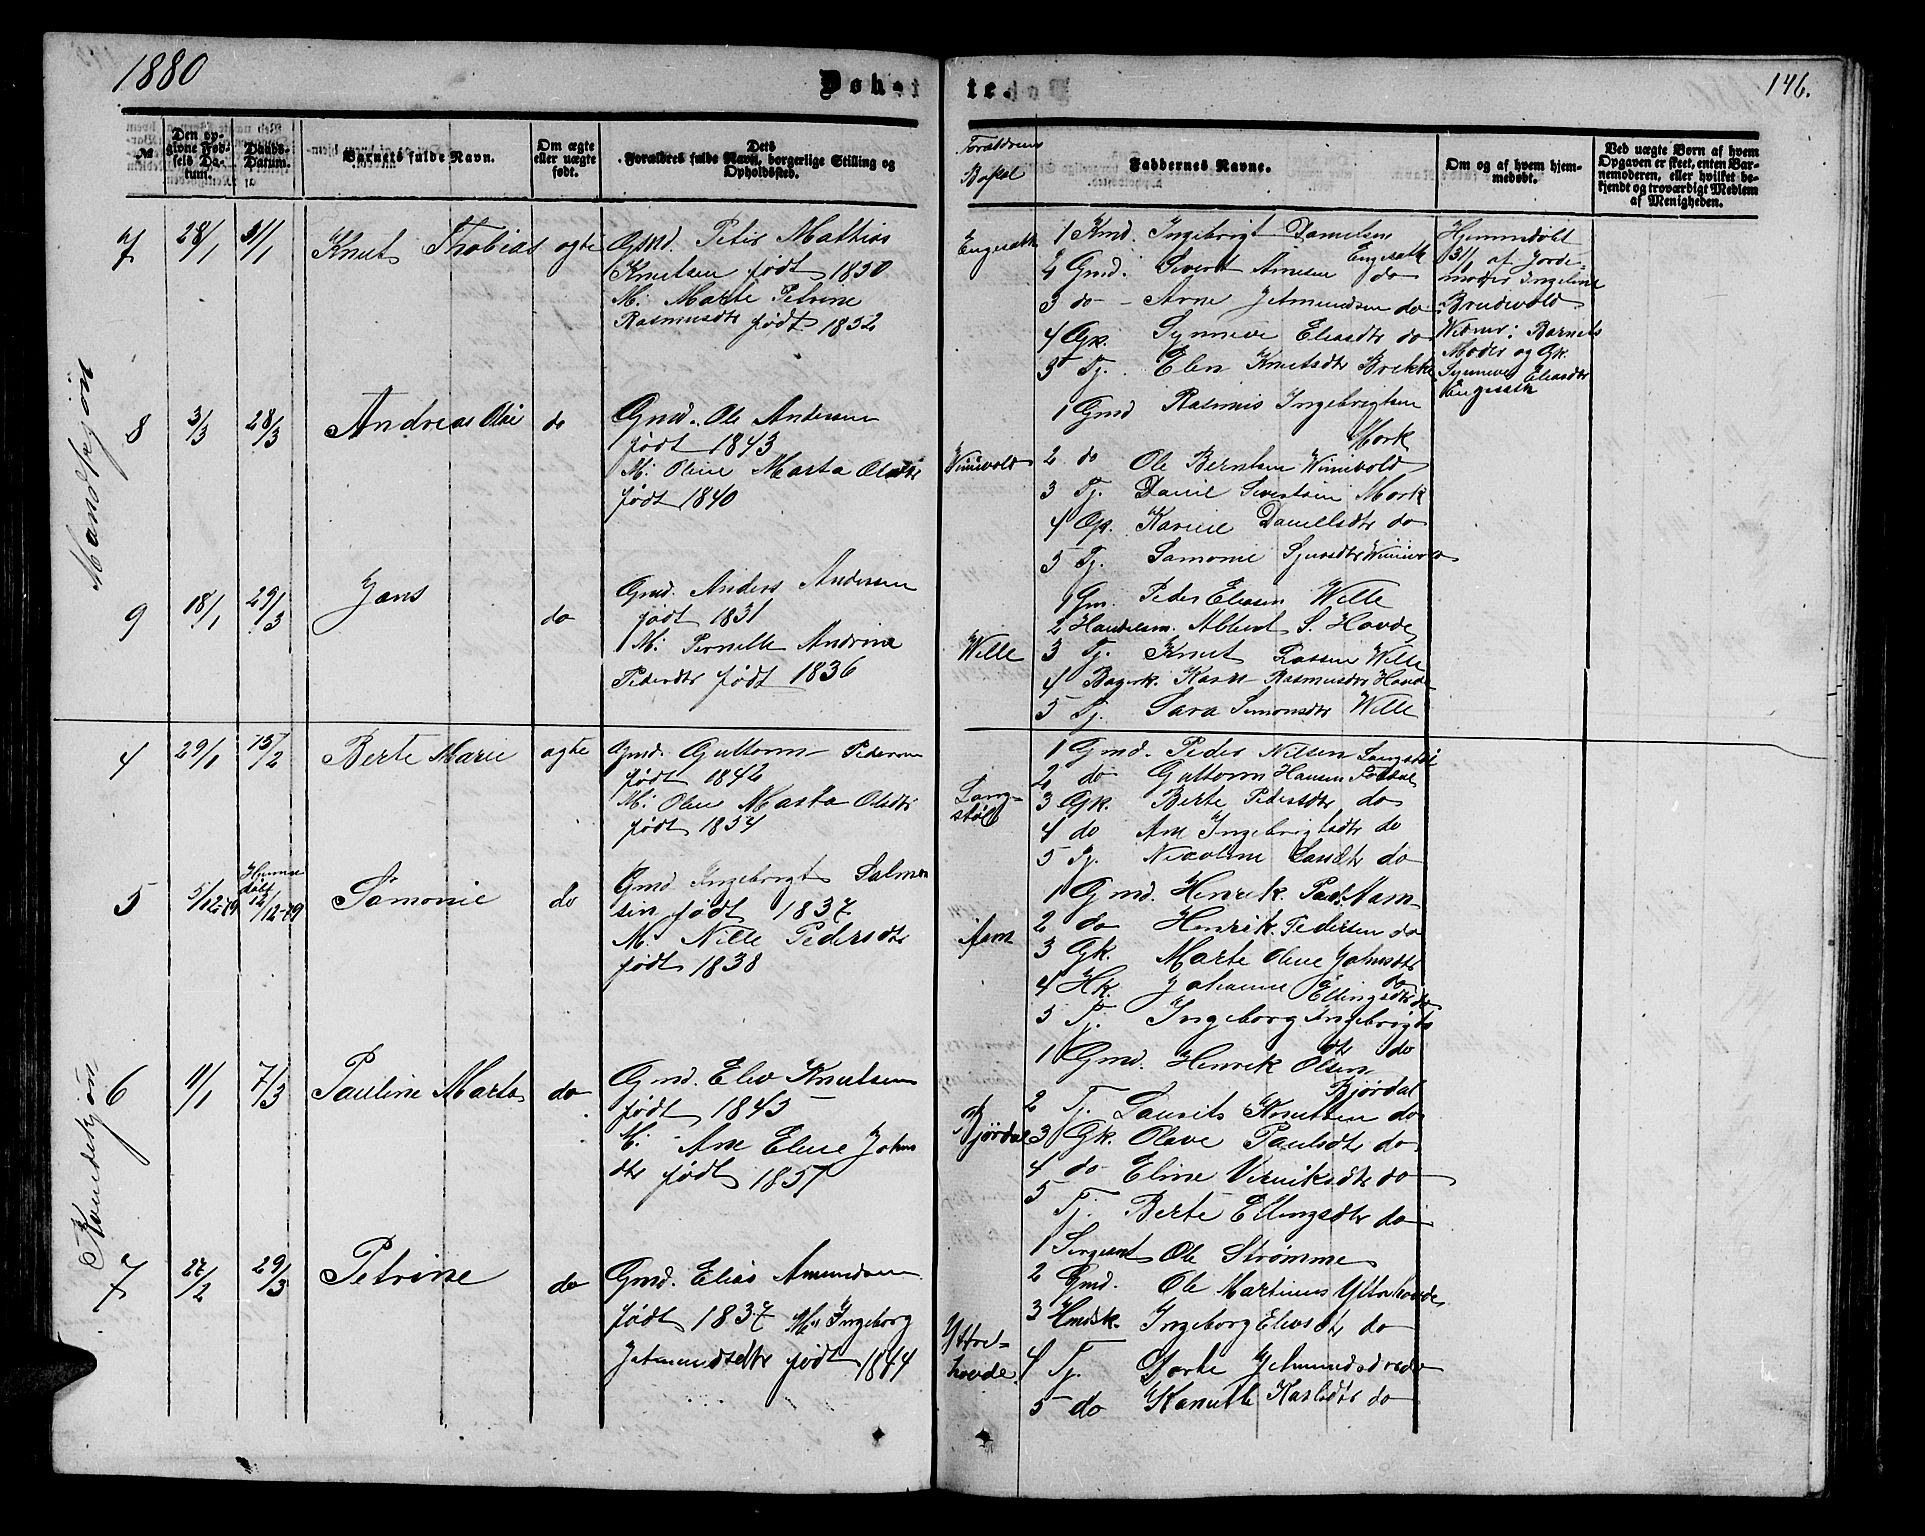 1880
Døbte.
146.
№
Den op-
givne Fød-
sels Da-
tum.
Daabs-
Datum.
Barnets fulde Navn.
Om ægte
eller uægte
født.
Dets
Forældres fulde Navn, borgerlige Stilling og
Opholdssted.
Forældrenes
Bopæl
Faddernes Navne.
Om og af hvem hjem-
medøbt.
Ved uægte Born af hvem
Opgaven er skeet, enten Bar-
nemoderen, eller hvilket be-
kjendt og troværdigt Medlem
af Menigheden.
Mandkjøn
7 28/1 31/1 Knut Thobias ægte
Peter Mathias
Knutsen født 1850
M: Marte Petrine
Rasmusdtr født 1852
Engesæth
1 Kmd. Ingebrigt Danielsen
Engesæth
2 Gmd. Sivert Arnesen do
3 do - Arne Jetmundsen do
4 Gk. Synneve Eliasdtr do
5 Tj. Elen Knutsdtr Brekke
Hjemmedøbt
31/1 af Jorde-
moder Ingeline
Brudevold
Vidner: Barnets
Moder og Gk.
Synneve Eliasdtr
Engesæth
8 3/3 28/3 Andreas Olai do
Gmd. Ole Andersen
født 1843
M: Oline Marta Olsdtr
født 1840
Winievold
1 Gmd Rasmus Ingebrigtsen
Mork
2 do Ole Berntsen Winievold
3 Tj. Daniel Sivertsen Mork
4 Gk. Karine Danielsdtr do
5 Tj. Samonie Sjursdtr Winievold
9 18/1 29/3 Jens do
Gmd. Anders Andersen
født 1831
M: Pernille Andrine
Pedersdtr født 1836
Welle
1 Gm. Peder Eliasen Welle
2 Handelsm. Albert S. Hovde
3 Tj. Knut Lassen Welle
4 Bagerk. Karen Rasmusdtr Hovde
5 Tj. Sara Simonsdtr Welle
Kvindekjøn
4 29/1 15/2 Berte Marie ægte
Gmd. Guttorm Pedersen
født 1842
M: Oline Marta Olsdtr
født 1854
Lang-
støl
1 Gmd. Peder Nilsen Langstøl
2 do Guttorm Hansen
3 Gk. Berte Pedersdtr do
4 do Ane Ingebrigtsdtr do
5 Tj. Nicoline Larsdtr do
5 5/12-79 Hjemme
døbt
12/12-79 Samonie do
Gmd. Ingebrigt Salmon
sen født 1837
M. Nille Pedersdtr
født 1838
Aam
1 Gmd. Henrik Aam
2 do Henrik Pedersen do
3 Gk. Marte Oline Johnsdtr
do
4 Hk. Johanne Ellingsdtr do
5 Tj. Ingeborg Ingebrigts
dtr do
6 11/1 7/3 Pauline Marta do
Gmd. Eliv Knutsen
født 1843
M: Ane Eline Johns
dtr født 1857
Bjørdal
1 Gmd. Henrik Olsen
Bjørdal
2 Tj. Laurits Knutsen do
3 Gk. Olave Paulsdtr do
4 do Eline do
5 Tj. Berte Ellingsdtr do
7 27/2 29/3 Petrine do
Gmd. Elias Amundsen
født 1837 M: Ingeborg
Jetmundsdtr født 1844
Yttre-
hovde
1 Sergeant Ole Strømme
2 Gmd. Ole Martinus Yttrehovde
3 Hmdsk. Ingeborg Eliasdtr do
4 Tj. Dorte Jetmundsdtr do
5 do Kanutte Karlsdtr do